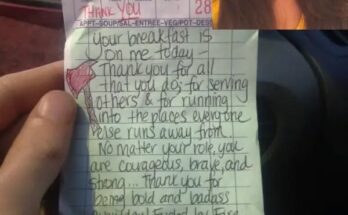 THANK YOU 28
APPT-SOUP/SAL-ENTREE-VEG/POT-DES
Your breakfast is
on me today -
Thank you for all
that you do; for serving
others & for running
into the places everyone
else runs away from.
No matter your role, you
are courageous, brave, and
strong... Thank you for
being bold and badass